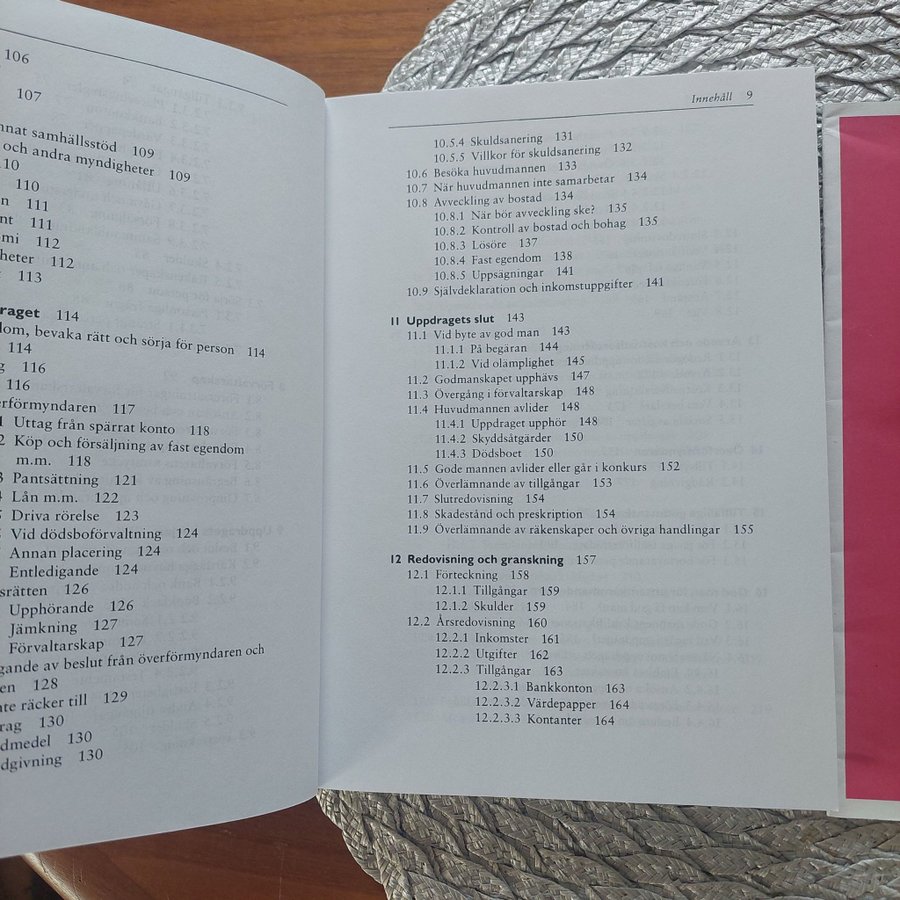 106
107
nnat samhällsstöd 109
och andra myndigheter 109
110
110
111
111
112
heter 112
113
raget 114
dom, bevaka rätt och sörja för person 114
114
116
116
erförmyndaren 117
1 Uttag från spärrat konto 118
2 Köp och försäljning av fast egendom
m.m. 118
3 Pantsättning 121
Lån m.m. 122
Driva rörelse 123
Vid dödsboförvaltning 124
Annan placering 124
Entledigande 124
srätten 126
Upphörande 126
Jämkning 127
Förvaltarskap 127
gande av beslut från överförmyndaren och
en 128
nte räcker till 129
rag 130
dmedel 130
dgivning 130
Innehåll 9
10.5.4 Skuldsanering 131
10.5.5 Villkor för skuldsanering 132
10.6 Besöka huvudmannen 133
10.7 När huvudmannen inte samarbetar 134
10.8 Avveckling av bostad 134
10.8.1 När bör avveckling ske? 135
10.8.2 Kontroll av bostad och bohag 135
10.8.3 Lösöre 137
10.8.4 Fast egendom 138
10.8.5 Uppsägningar 141
10.9 Självdeklaration och inkomstuppgifter 141
11 Uppdragets slut 143
11.1 Vid byte av god man 143
11.1.1 På begäran 144
11.1.2 Vid olämplighet 145
11.2 Godmanskapet upphävs 147
11.3 Övergång i förvaltarskap 148
11.4 Huvudmannen avlider 148
11.4.1 Uppdraget upphör 148
11.4.2 Skyddsåtgärder 150
11.4.3 Dödsboet 150
11.5 Gode mannen avlider eller går i konkurs 152
11.6 Överlämnande av tillgångar 153
11.7 Slutredovisning 154
11.8 Skadestånd och preskription 154
11.9 Överlämnande av räkenskaper och övriga handlingar 155
12 Redovisning och granskning 157
12.1 Förteckning 158
12.1.1 Tillgångar 159
12.1.2 Skulder 159
12.2 Årsredovisning 160
12.2.1 Inkomster 161
12.2.2 Utgifter 162
12.2.3 Tillgångar 163
12.2.3.1 Bankkonton 163
12.2.3.2 Värdepapper 164
12.2.3.3 Kontanter 164